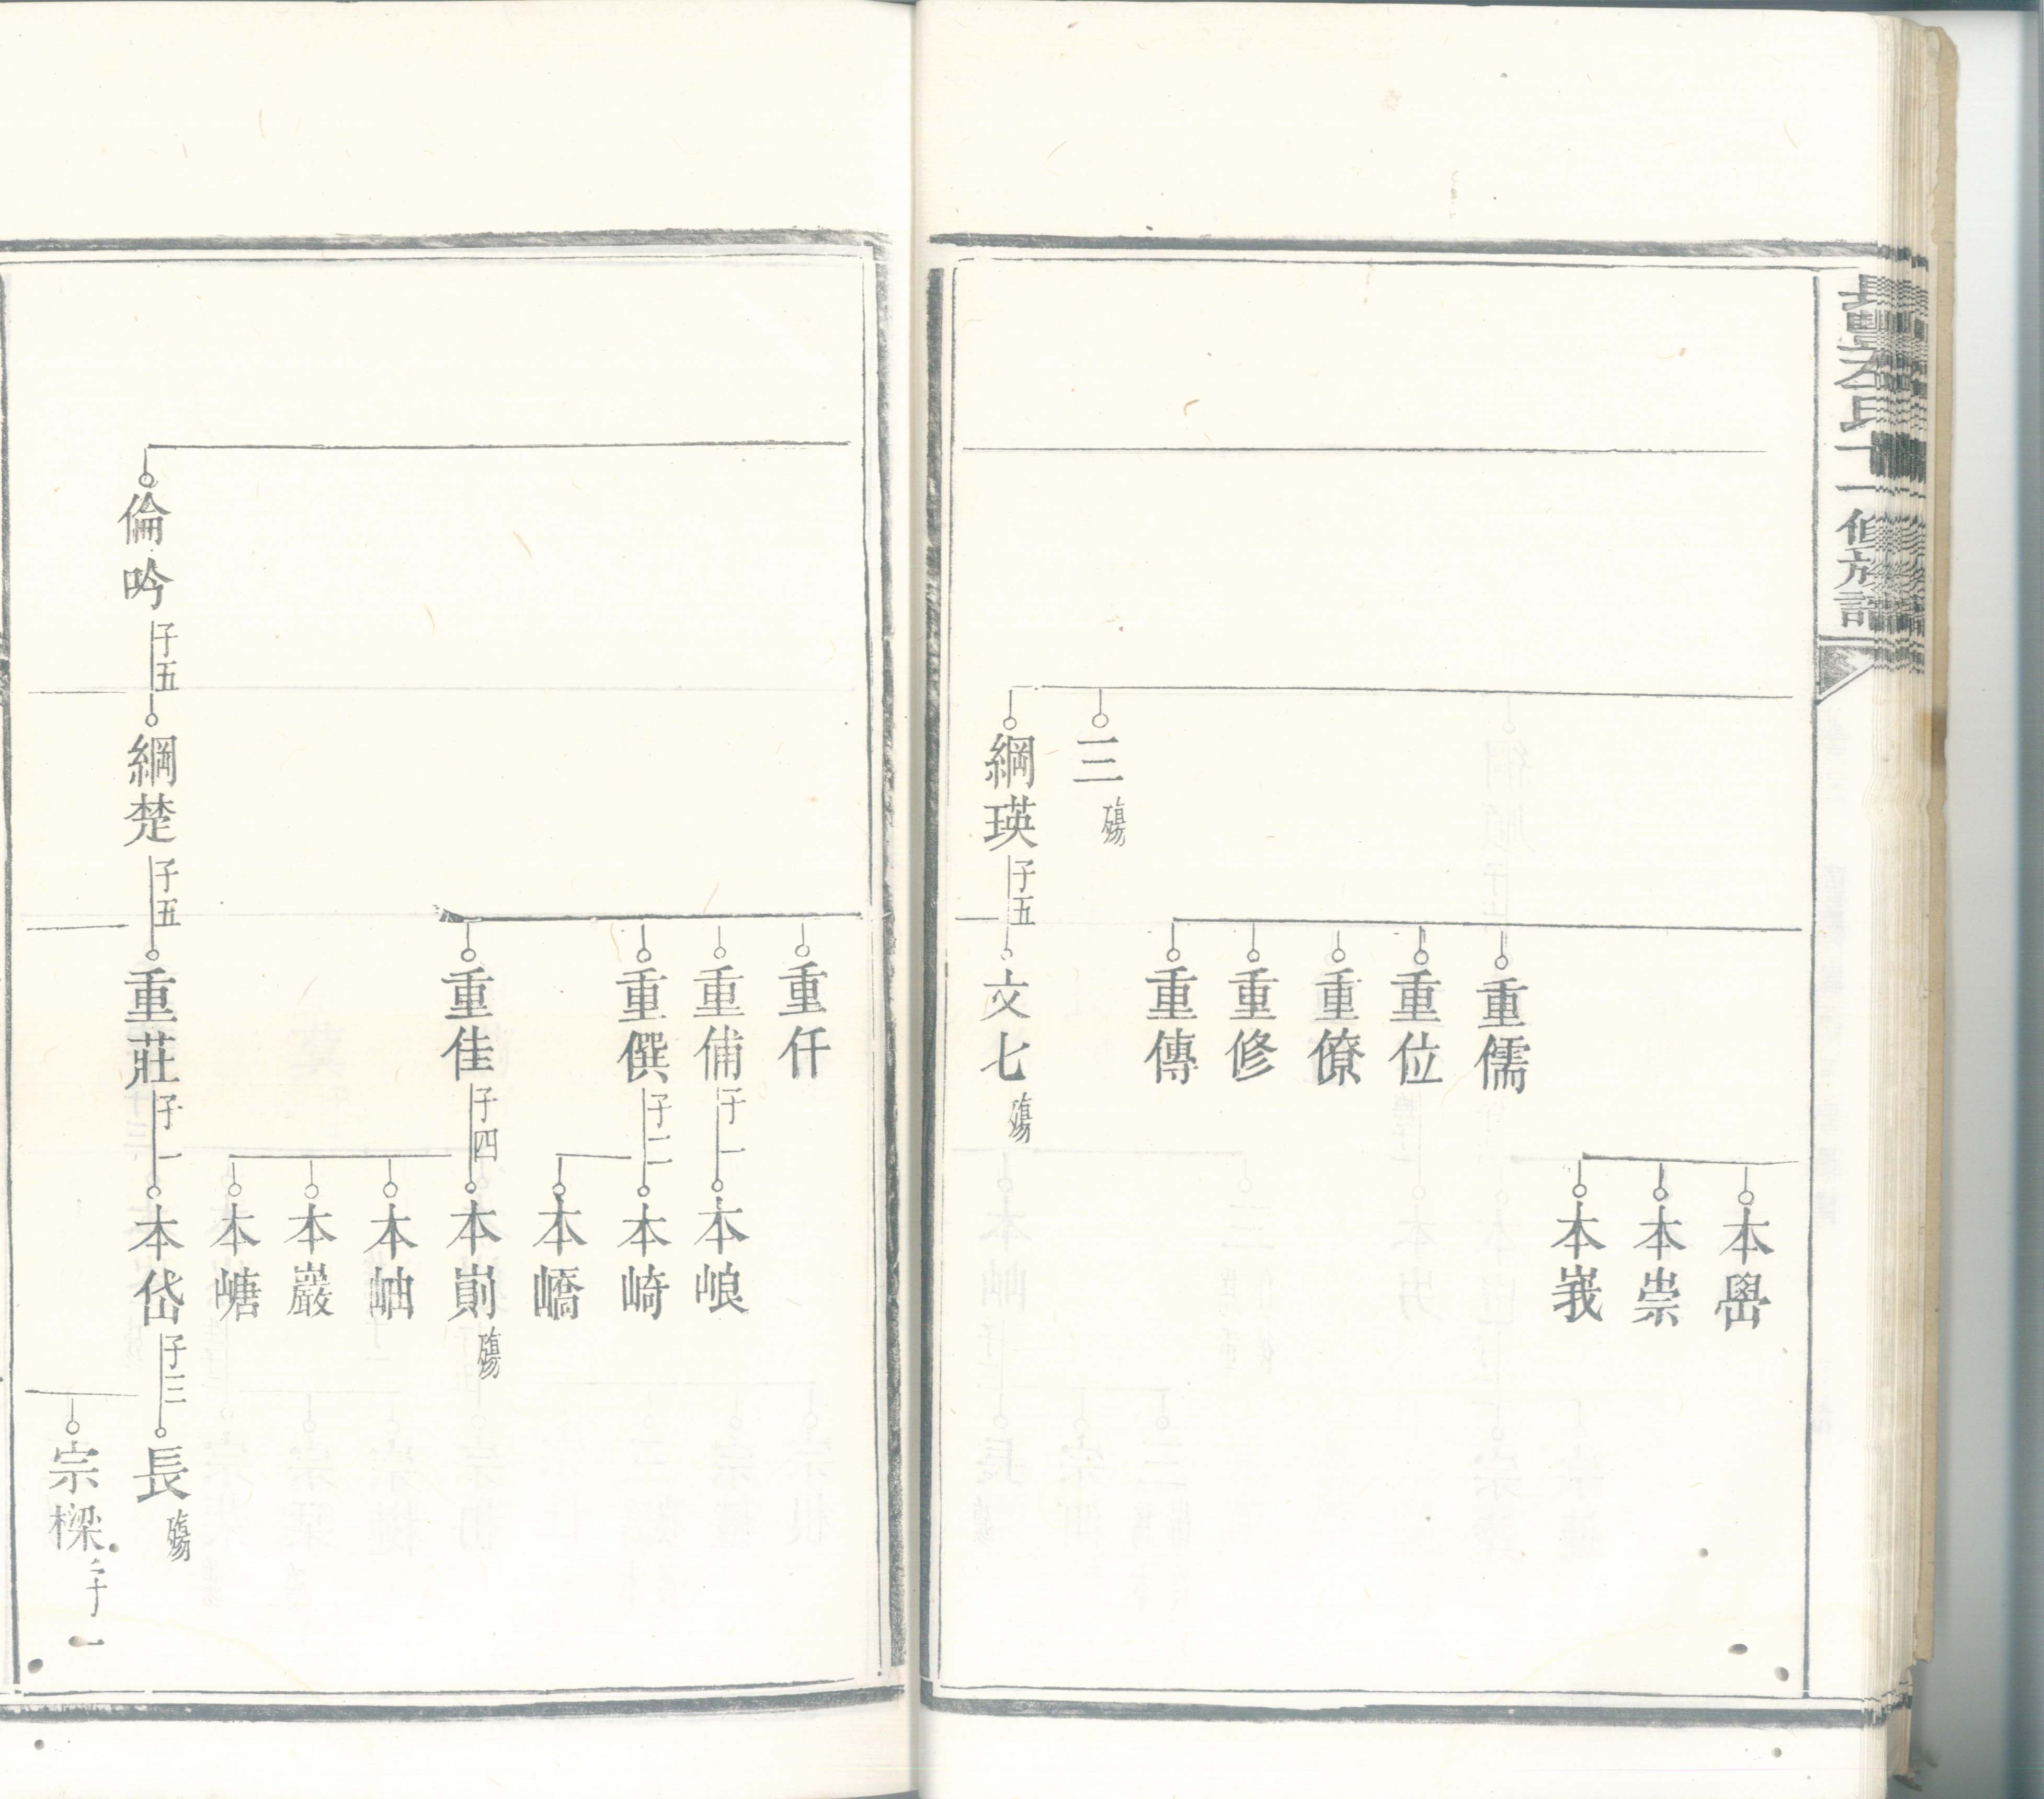 氏十一修族譜
本嶨
本崇
本峩
重儒
重位
重僚
重修
重傳
三 殤
綱瑛 子五
文七 殤
重仟
重備 子一
本峎
重僎 子二
本崎
本嶠
重佳 子四
本崱 殤
本岫
本巖
本嵣
倫吟 子五
綱楚 子五
重莊 子一
本岱 子三
長 殤
宗樑 子一